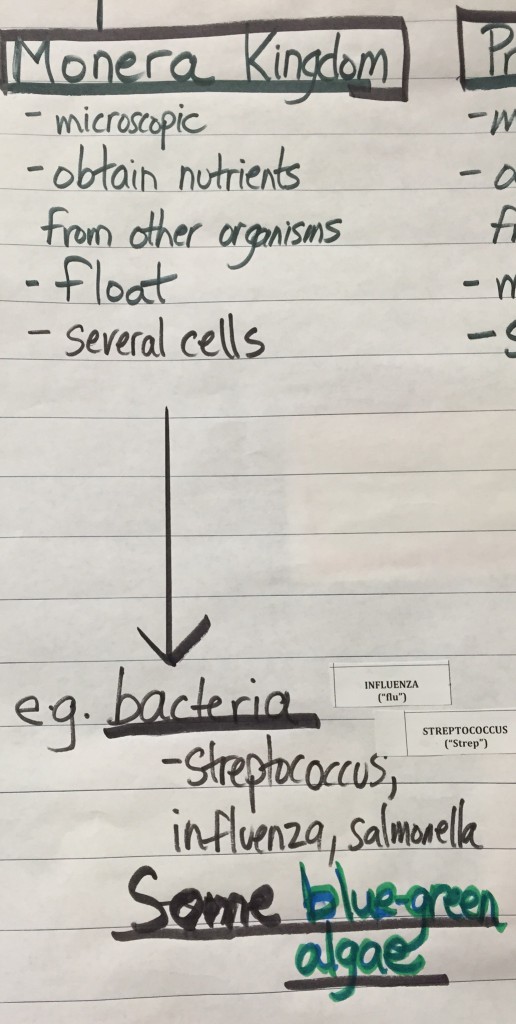 Monera Kingdom
- microscopic
- obtain nutrients
from other organisms
- float
- several cells
e.g. bacteria
INFLUENZA
("flu")
STREPTOCOCCUS
("Strep")
-Streptococcus,
influenza, salmonella
Some blue-green
algae